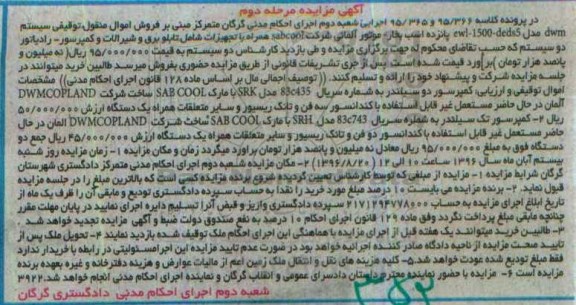 آگهی مزایده مرحله دوم
در پرونده کلاسه ۹۵/۳۶۶ و ۹۵/۳۶۵ اجرایی شعبه دوم اجرای احکام مدنی گرگان متمرکز مبنی بر فروش اموال منقول توقیفی سیستم
dwm مدل ewl-1500-deds5 پانزده اسب بخار، موتور آلمانی شرکت sabcool همراه با تجهیزات شامل تابلو برق و شیرآلات و کمپرسور- رادیاتور
دو سیستم که حسب تقاضای محکوم له جهت برگزاری مزایده و طی بازدید کارشناس دو سیستم به قیمت ۹۵/۰۰۰/۰۰۰ ریال( نه میلیون و
پانصد هزار تومان )برآورد قیمت شده است. پس از جری تشریفات قانونی از طریق مزایده حضوری بفروش میرسد طالبین خرید میتوانند در
جلسه مزایده شرکت و پیشنهاد خود را ارائه و تسلیم کنند. (( توصیف اجمالی مال بر اساس ماده ۱۲۸ قانون اجرای احکام مدنی)) مشخصات
اموال توقیفی و ارزیابی: کمپرسور دو سیلندر به شماره سریال 83c435 مدل SRK با مارک SAB COOL ساخت شرکت DWMCOPLAND
آلمان در حال حاضر مستعمل غیر قابل استفاده با کندانسور سه فن و تانک ریسیور و سایر متعلقات همراه یک دستگاه ارزش ۵۰/۰۰۰/۰۰۰
ریال ۲- کمپرسور تک سیلندر به شماره سریال 83c743 مدل SRH با مارک SAB COOL ساخت شرکت DWMCOPLAND آلمان در حال
حاضر مستعمل غیر قابل استفاده با کندانسور دو فن و تانک ریسیور و سایر متعلقات همراه یک دستگاه ارزش ۴۵/۰۰۰/۰۰۰ ریال جمع دو
دستگاه فوق به مبلغ ۹۵/۰۰۰/۰۰۰ ریال معادل نه میلیون و پانصد هزار تومان برآورد میگردد زمان و مکان مزایده ۱- زمان مزایده روز شنبه
بیستم آبان ماه سال ۱۳۹۶ ساعت ۱۰ الی ۱۲ (۱۳۹۶/۸/۲۰) ۲- مکان مزایده شعبه دوم اجرای احکام مدنی متمرکز دادگستری شهرستان
گرگان شرایط مزایده ۱- مزایده از مبلغی که توسط کارشناس تعیین گردیده شروع برنده مزایده کسی است که بالاترین مبلغ را در جلسه مزایده
قبول نماید. ۲- برنده مزایده می بایست ۱۰ درصد مبلغ مورد خرید را نقدا به حساب سپرده دادگستری تودیع و مابقی آن را ظرف یک ماه از
تاریخ ابلاغ اجرای مزایده به حساب ۲۱۷۱۲۹۴۷۷۸۰۰۰ سپرده دادگستری واریز و قبض آنرا تسلیم دایره اجرای نمایید در پایان مهلت مقرر
چنانچه مابقی مبلغ پرداخت نگردد وفق ماده ۱۲۹ قانون اجرای احکام ۱۰ درصد به نفع صندوق دولت ضبط و آگهی مزایده تجدید خواهد شد .
۳- طالبین خرید میتوانند یک هفته قبل از اجرای مزایده با هماهنگی این اجرای احکام ملک توقیف شده بازدید نمایند ۴- تحویل ملک پس از
تایید صحت مزایده از ناحیه دادگاه صادر کننده اجرائیه خواهد بود در صورت عدم تایید مزایده این اجرا مسئولیتی در رابطه با خریدار ندارد
فقط مبلغ تودیع شده عودت خواهد شد. ۵- کلیه هزینه های نقل و انتقال ملک زمین اعم از مالیات عوارض و هزینه دفترخانه و غیره بعهده برنده
مزایده است ۶- مزایده با حضور نماینده محترم دادستان دادسرای عمومی و انقلاب گرگان و نماینده اجرای احکام مدنی انجام خواهد شد. ۳۹۲۲
شعبه دوم اجرای احکام مدنی دادگستری گرگان